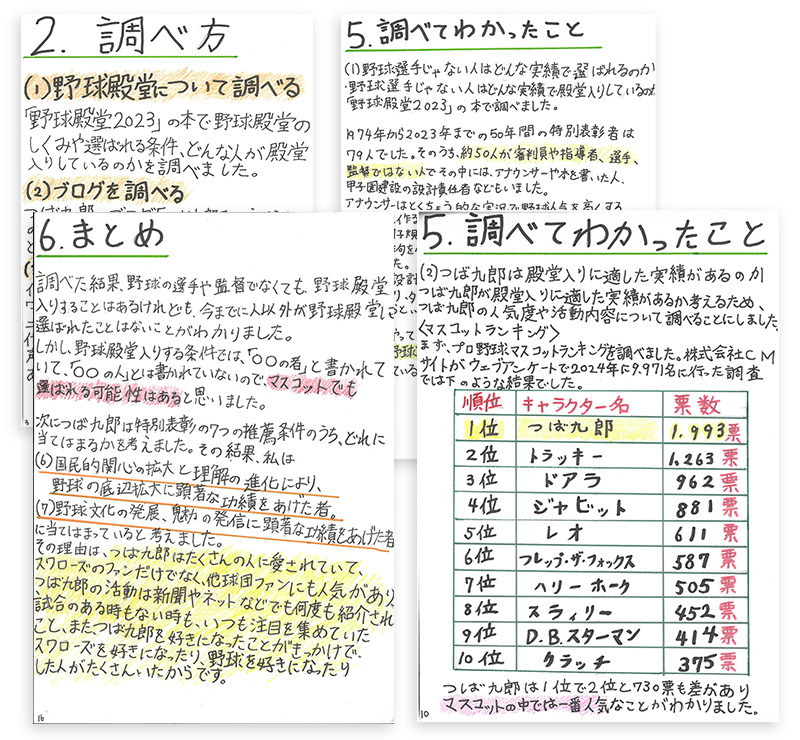 2. 調べ方
(1)野球殿堂について調べる
「野球殿堂2023」の本で野球殿堂の
しくみや選ばれる条件、どんな人が殿堂
入りしているのかを調べました。
(2)ブログを調べる
5. 調べてわかったこと
(1)野球選手じゃない人はどんな実績で選ばれるのか
・野球選手じゃない人はどんな実績で殿堂入りしているのか
「野球殿堂2023」の本で調べました。
1974年から2023年までの50年間の特別表彰者は
79人でした。そのうち、約50人が審判員や指導者、選手、
監督ではない人でその中には、アナウンサーや本を書いた人、
甲子園建設の設計責任者などもいました。
アナウンサーはとくちょう的な実況で野球人気を高くする
6. まとめ
調べた結果、野球の選手や監督でなくても、野球殿堂
入りすることはあるけれども、今までに人以外が野球殿堂に
選ばれたことはないことがわかりました。
しかし、野球殿堂入りする条件では、「〇〇の者」と書かれて
いて、「〇〇の人」とは書かれていないので、マスコットでも
選ばれる可能性はあると思いました。
次につば九郎は特別表彰の7つの推薦条件のうち、どれに
当てはまるかを考えました。その結果、私は
(6)国民的関心の拡大と理解の進化により、
野球の底辺拡大に顕著な功績をあげた者。
(7)野球文化の発展、魅力の発信に顕著な功績をあげた者
に当てはまっていると考えました。
その理由は、つば九郎はたくさんの人に愛されていて、
スワローズのファンだけでなく、他球団ファンにも人気があり、
つば九郎の活動は新聞やネットなどでも何度も紹介され
試合のある時もない時も、いつも注目を集めていた
こと、また、つば九郎を好きになったことがきっかけで、
スワローズを好きになったり、野球を好きになったり
した人がたくさんいたからです。
16
5. 調べてわかったこと
(2)つば九郎は殿堂入りに適した実績があるのか
つば九郎が殿堂入りに適した実績があるか考えるため、
つば九郎の人気度や活動内容について調べることにしました。
〈マスコットランキング〉
まず、プロ野球マスコットランキングを調べました。株式会社CM
サイトがウェブアンケートで2024年に9,971名に行った調査
では下のような結果でした。
順位 キャラクター名 票数
1位 つば九郎 1,993票
2位 トラッキー 1,263票
3位 ドアラ 962票
4位 ジャビット 881票
5位 レオ 611票
6位 フレップ・ザ・フォックス 587票
7位 ハリーホーク 505票
8位 スライリー 452票
9位 D.B.スターマン 414票
10位 クラッチ 375票
つば九郎は1位で2位と730票も差があり
マスコットの中では一番人気なことがわかりました。
10